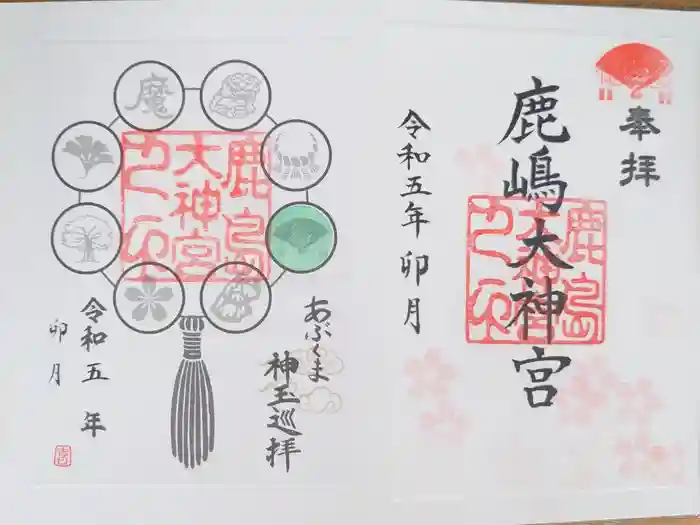 奉拝
鹿嶋大神宮
令和五年 卯月
鹿島
大神宮
之印
魔
あぶくま
神玉巡拝
令和五年
卯月
鹿島
大神宮
之印